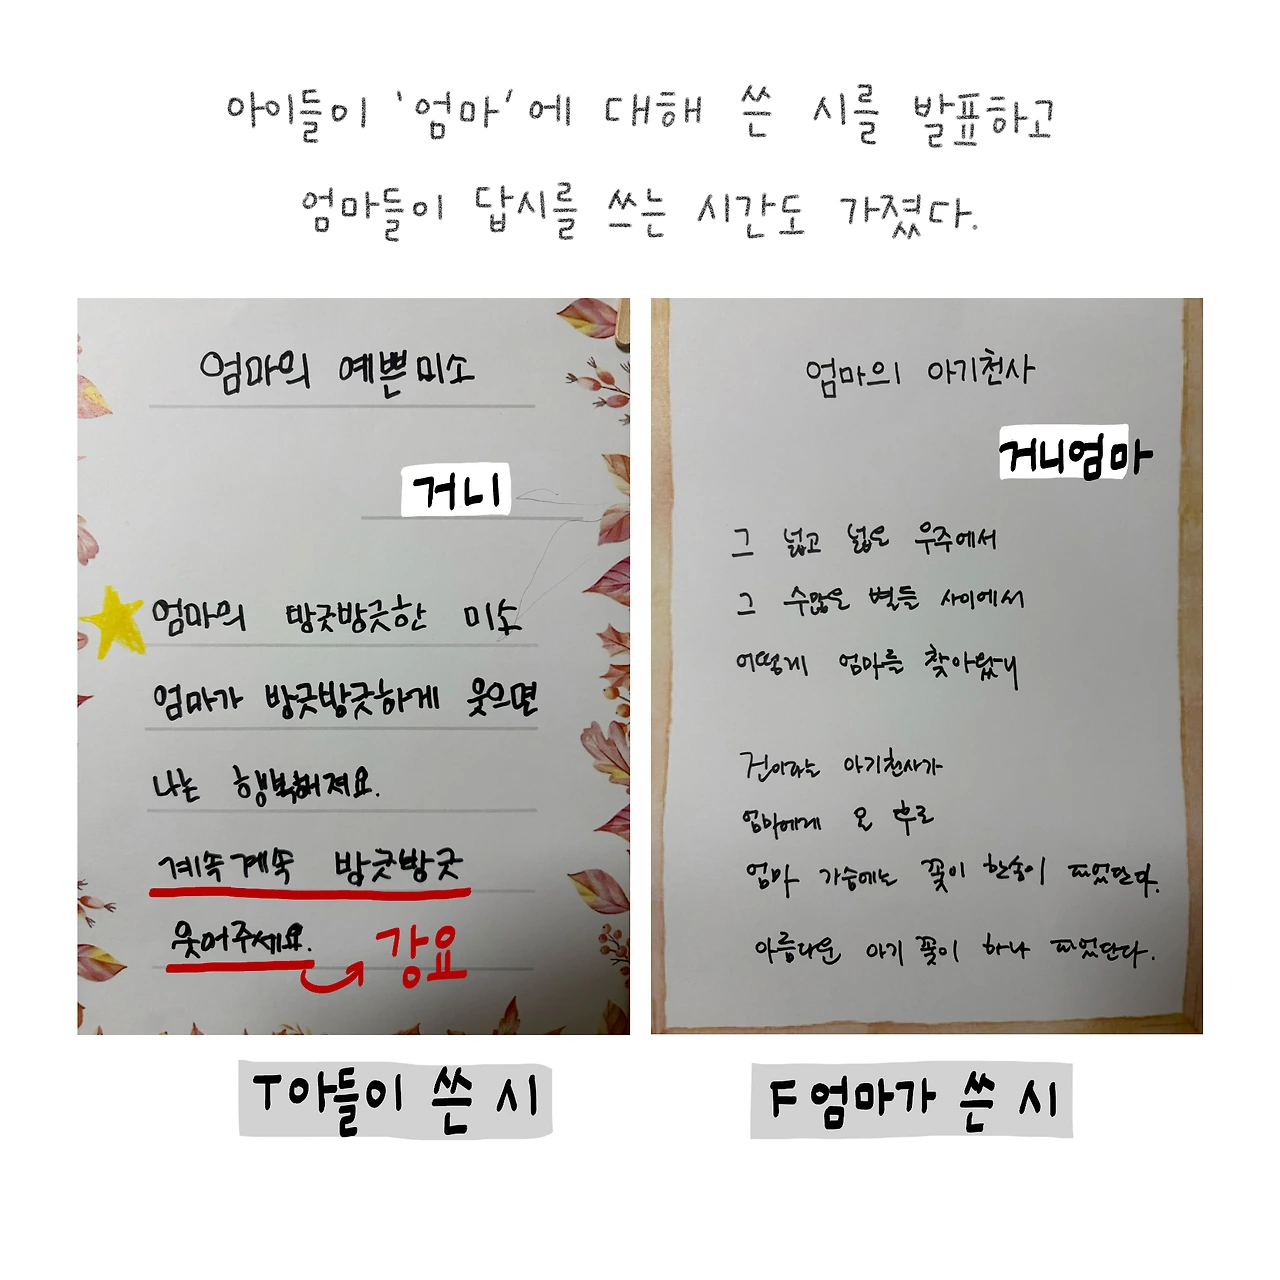 아이들이 '엄마'에 대해 쓴 시를 발표하고
엄마들이 답시를 쓰는 시간도 가졌다.
엄마의 예쁜미소
거니
엄마의 방긋방긋한 미소
엄마가 방긋방긋하게 웃으면
나는 행복해져요.
계속계속 방긋방긋
웃어주세요.
강요
T아들이 쓴 시
엄마의 아기천사
거니엄마
그 넓고 넓은 우주에서
그 수많은 별들 사이에서
어떻게 엄마를 찾아왔니
건이라는 아기천사가
엄마에게 온 후로
엄마 가슴에는 꽃이 한송이 피었단다.
아름다운 아기 꽃이 하나 피었단다.
F엄마가 쓴 시